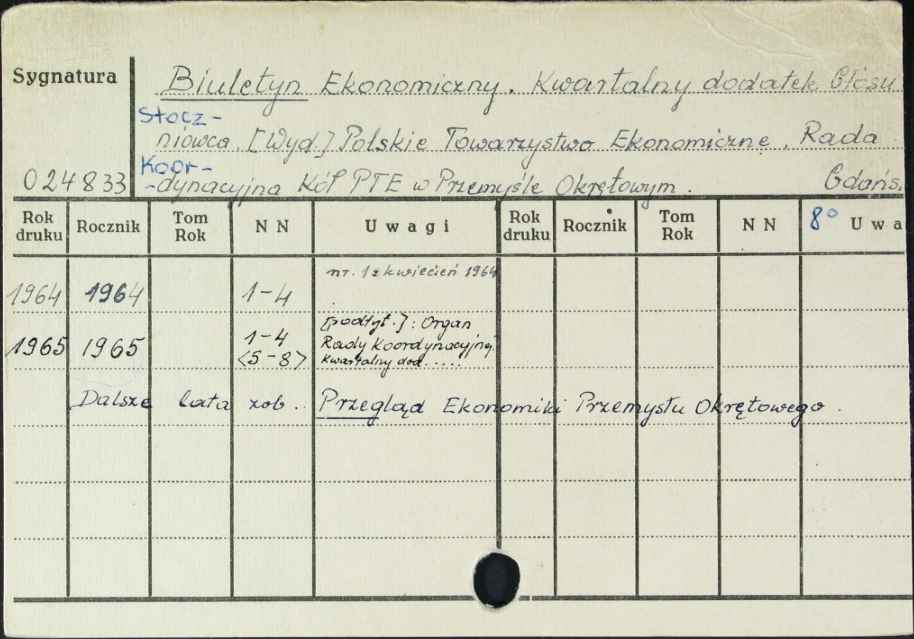 Sygnatura
Biuletyn Ekonomiczny. Kwartalny dodatek Głosu
Stocz-
niowca. [Wyd.] Polskie Towarzystwo Ekonomiczne. Rada
Koor-
024833 -dynacyjna Kół PTE w Przemyśle Okrętowym. Gdańs
Rok druku Rocznik Tom Rok NN Uwagi Rok druku Rocznik Tom Rok NN 8° Uwa
nr. 1 z kwiecień 1964
1964 1964 1-4
[podtyt.]: Organ
1965 1965 1-4 Rady Koordynacyjnej.
<5-8> Kwartalny dod.....
Dalsze lata zob. Przegląd Ekonomiki Przemysłu Okrętowego.